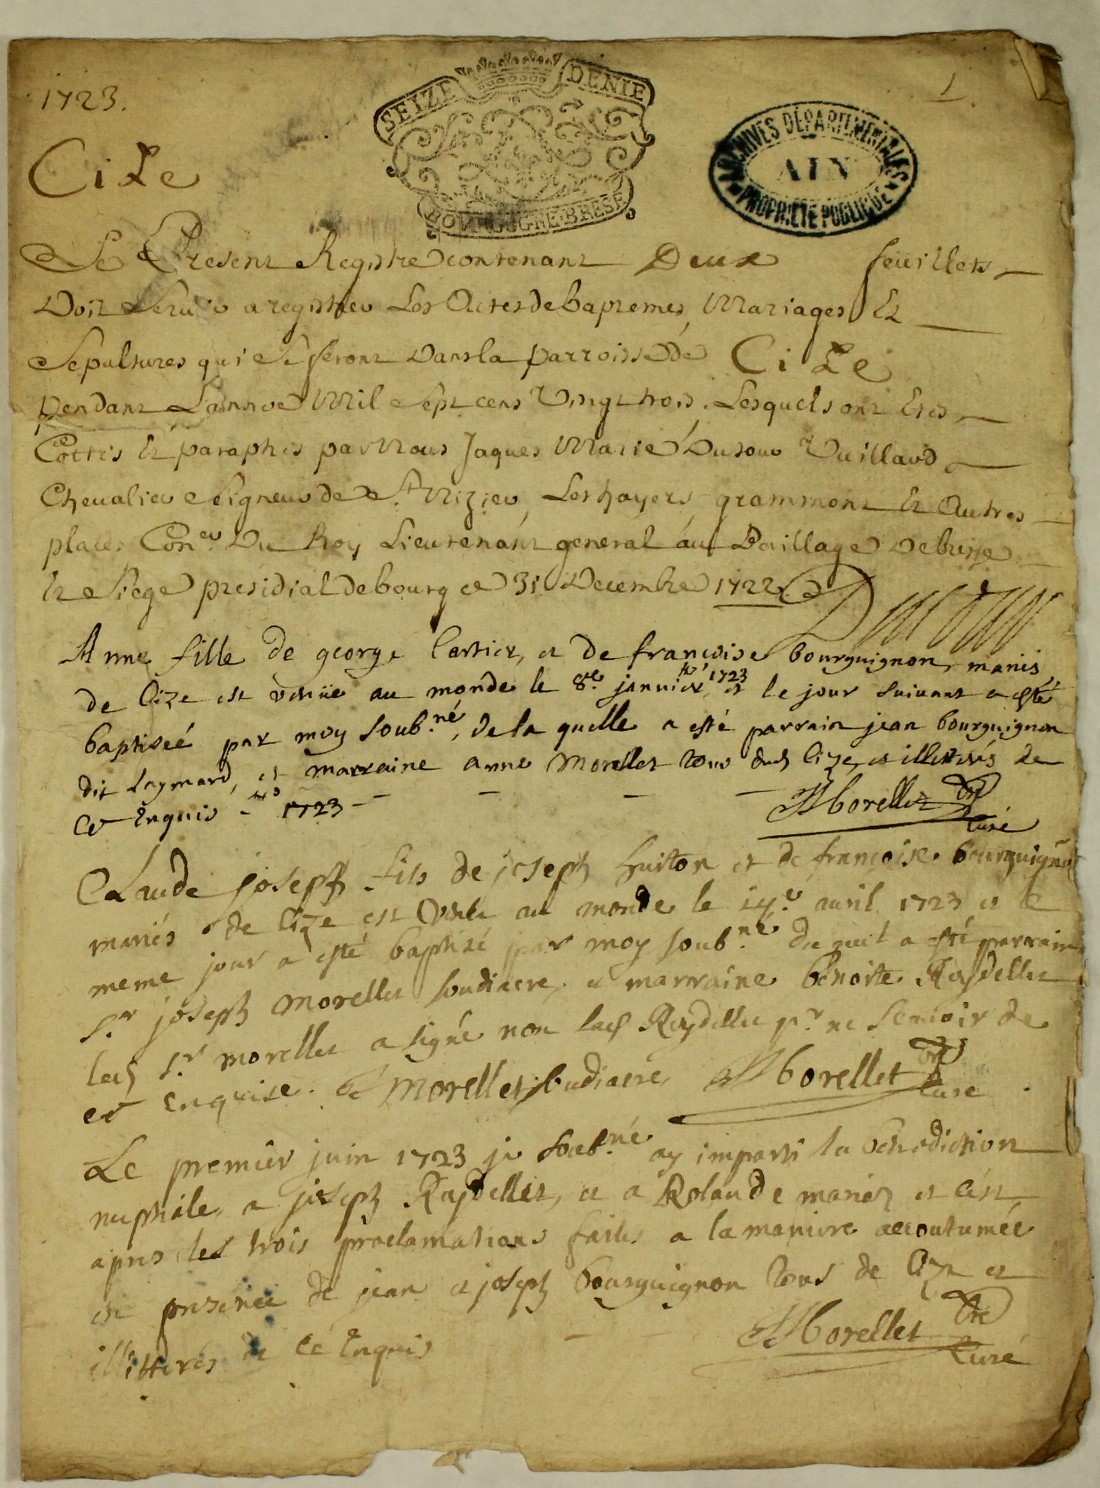 1723.
1
SEIZE DENIE
BOURGOGNE BRESSE
ARCHIVES DÉPARTEMENTALES
AIN
PROPRIÉTÉ PUBLIQUE
CiZe
Le Present Registre contenant Deux feuillets
Doit servir a registrer Les Actes de baptemes, Mariages Et
Sepultures qui se feront Dans la parroisse de CiZe
pendant L'année Mil sept cens Vingt trois. Lesquels ont Etés
Cottés Et paraphés par Nous Jaques Marie Dusour Vuillard
Chevalier Seigneur de St Nizier, Les hayers, grammont Et Autres
places Conser Du Roy Lieutenant general au Bailliage De bresse
Et Siege presidial de bourg ce 31 Decembre 1722
Anne fille de george, et de françoise bourguignon, mariés
de Cize est venüe au monde le 8e janvier 1723 et le jour suivant a esté
baptiseé par moy soub.né, de la quelle a esté parrain jean bourguignon
dit Laymard, et marraine anne Morellet tous dud Cize, et illettrés de
ce Enquis 1723
Morellet ptre
Curé
Claude joseph fils de joseph et de françoise bourguignon
mariés de Cize est venu au monde le avril 1723 et le
meme jour a esté baptisé par moy soub.né duquel a esté parrain
S.r joseph Morellet soudiacre, et marraine benoite Raydellet
led S.r morellet a signé non lad Raydellet p.r ne scavoir de
ce Enquise. Morellet, sudiacre, Morellet ptre
Curé
Le premier juin 1723 je soub.né ay imparti la benediction
nuptiale, a joseph Raydellet, et a Rolande mariés et c'est
apres les trois proclamations faites a la maniere accoutumée
en presence de jean et joseph bourguignon tous de Cize et
illitteres de ce Enquis
Morellet ptre
Curé